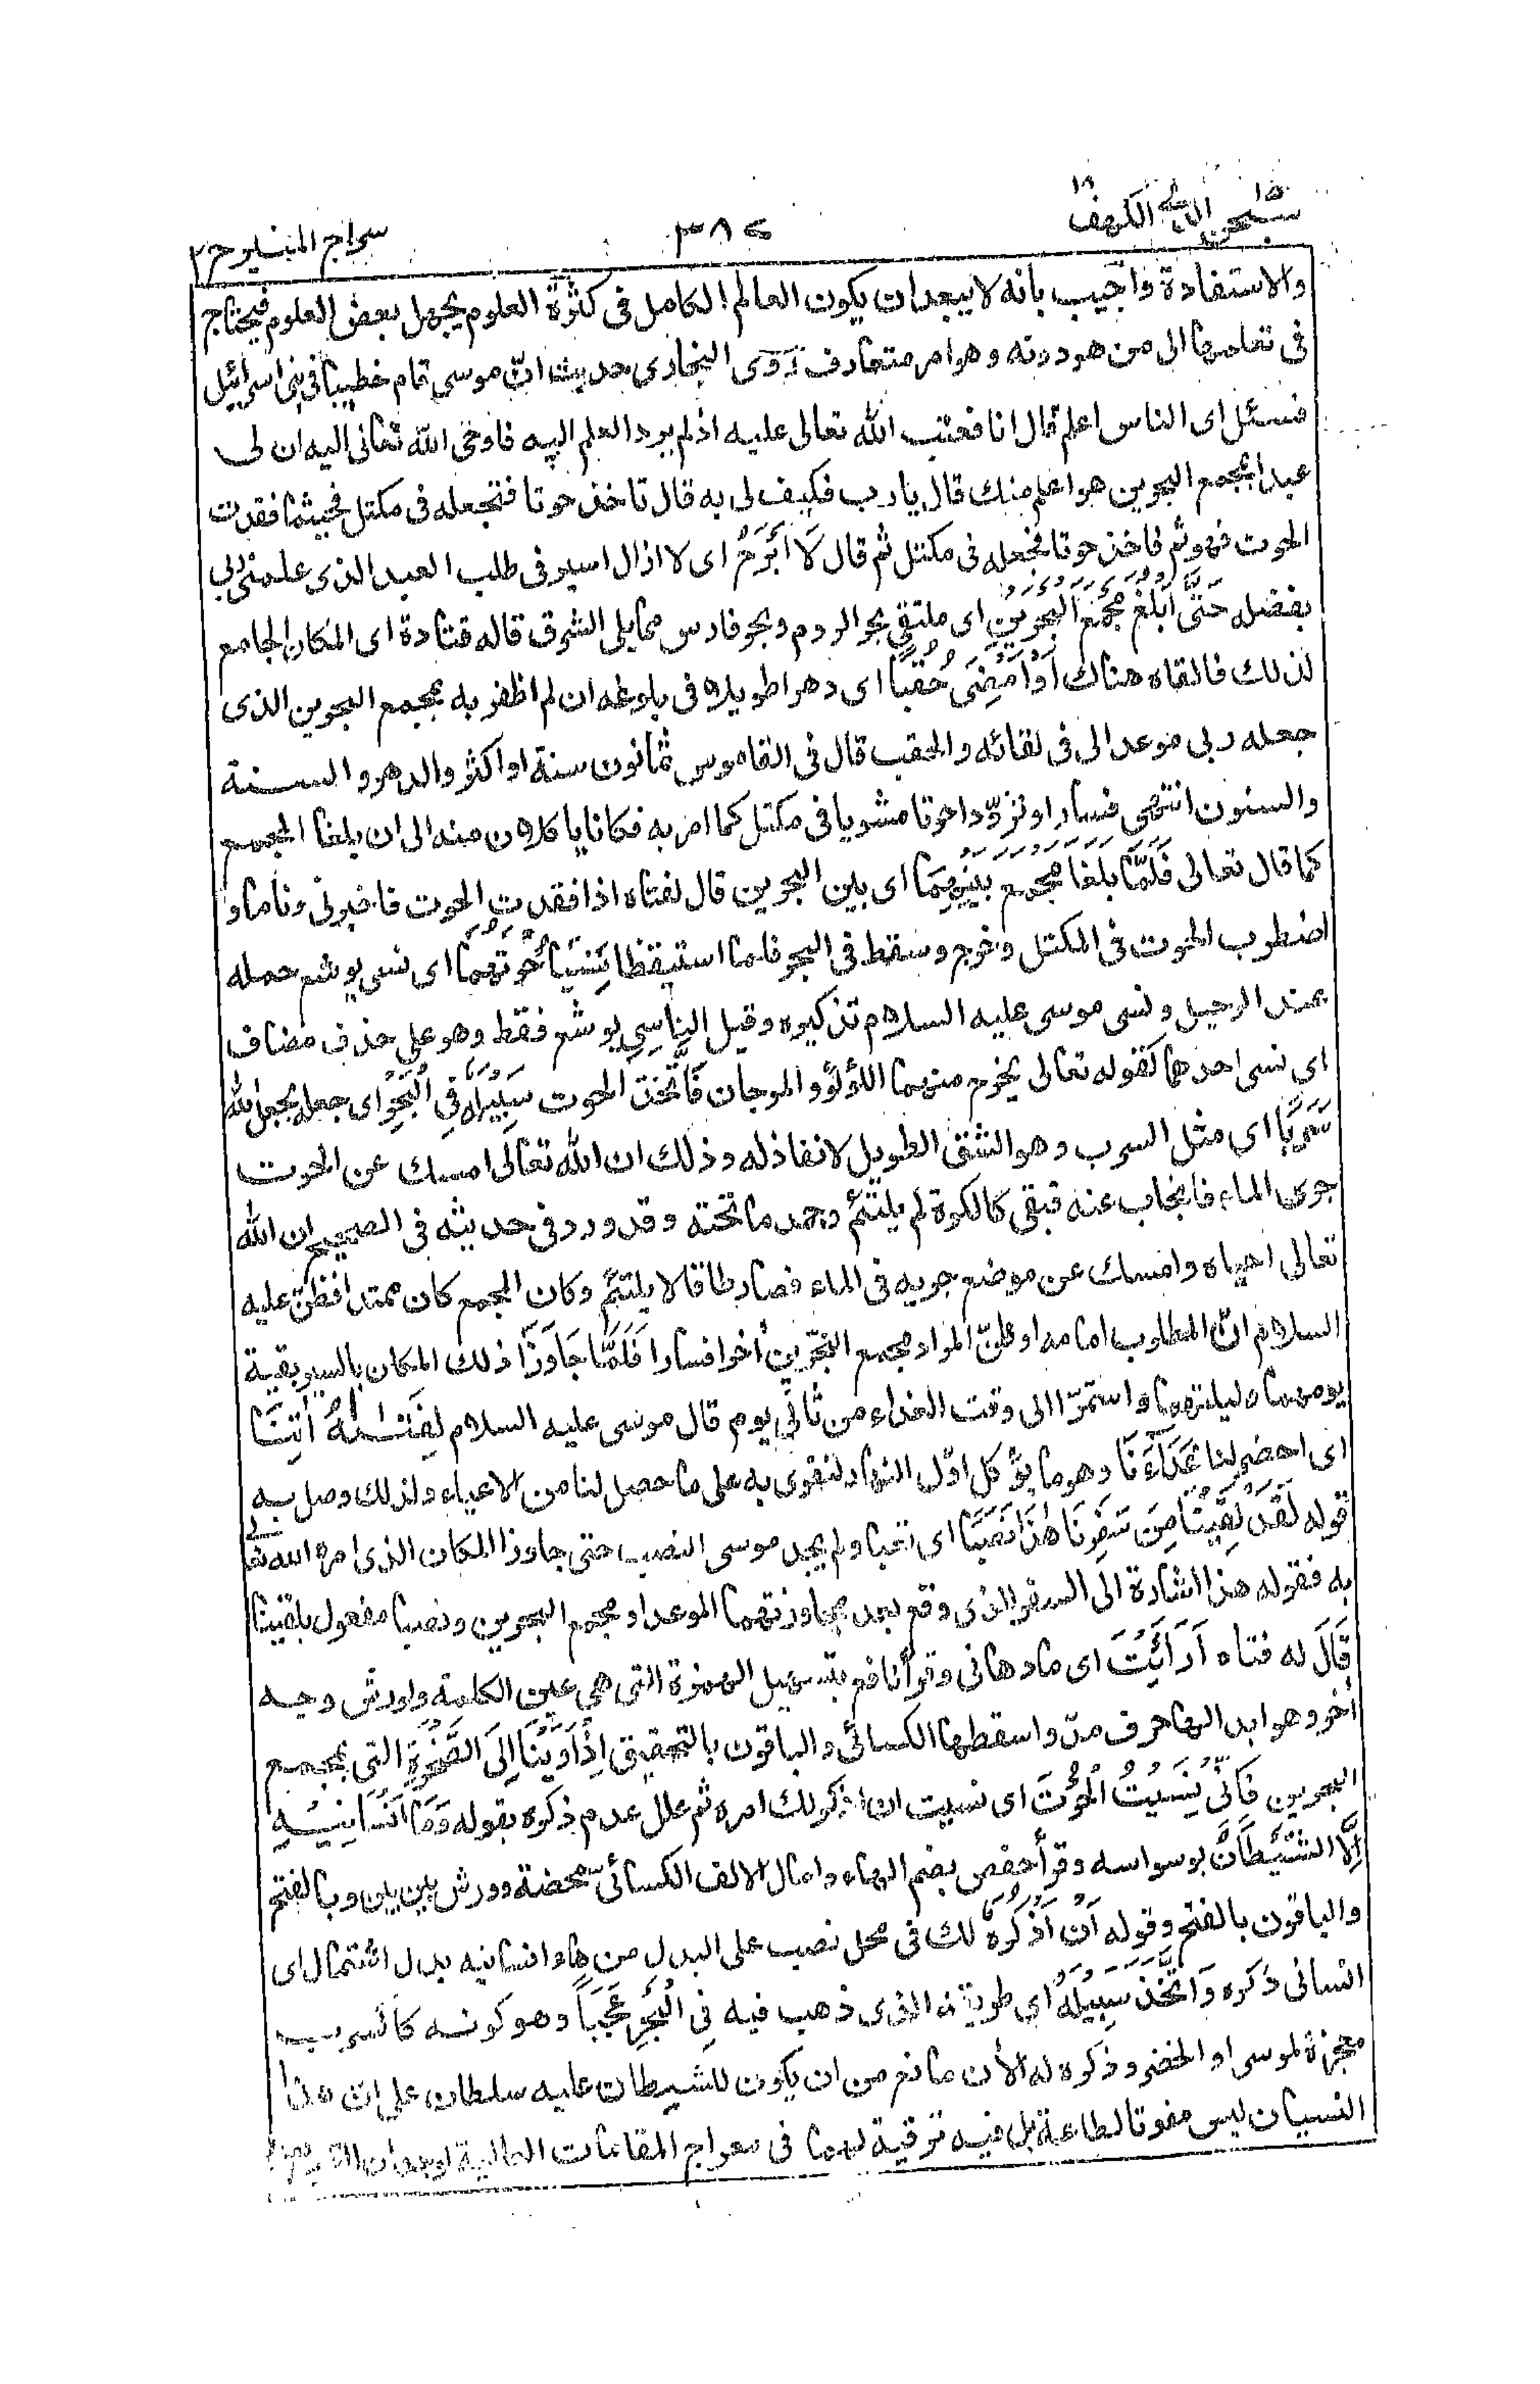 سبحن الذي ١٥ الكهف ١٨
٣٨٤
سراج المنير ج ٢
والاستفادة واجيب بانه لا يبعد ان يكون العالم الكامل فى كثرة العلوم يجهل بعض العلوم فيحتاج
فى تعلمها الى من هو دونه وهو امر متعارف روى البخارى حديث ان موسى قام خطيبا فى بنى اسرائيل
فسئل اى الناس اعلم قال انا فعتب الله تعالى عليه اذ لم يرد العلم اليه فاوحى الله تعالى اليه ان لى
عبدا بمجمع البحرين هو اعلم منك قال يارب فكيف لى به قال تاخذ حوتا فتجعله فى مكتل فحيثما فقدت
الحوت فهو ثم فاخذ حوتا فجعله فى مكتل ثم قال لَا اَبْرَحُ اى لا ازال اسير فى طلب العبد الذى علمنى ربى
بفضله حَتّٰى اَبْلُغَ مَجْمَعَ الْبَحْرَيْنِ اى ملتقى بحر الروم وبحر فارس مما يلى الشرق قاله قتادة اى المكان الجامع
لذلك فالقاه هناك اَوْ اَمْضِىَ حُقُبًا اى دهرا طويلا فى بلوغه ان لم اظفر به بمجمع البحرين الذى
جعله ربى موعدا لى فى لقائه والحقب قال فى القاموس ثمانون سنة او اكثر والدهر والسنة
والسنون انتهى فسارا وتزودا حوتا مشويا فى مكتل كما امر به فكانا ياكلان منه الى ان بلغا المجمع
كما قال تعالى فَلَمَّا بَلَغَا مَجْمَعَ بَيْنِهِمَا اى بين البحرين قال لفتاه اذا فقدت الحوت فاخبرنى وناما و
اضطرب الحوت فى المكتل وخرج وسقط فى البحر فلما استيقظا نَسِيَا حُوْتَهُمَا اى نسى يوشع حمله
عند الرحيل ونسى موسى عليه السلام تذكيره وقيل الناسى يوشع فقط وهو على حذف مضاف
اى نسى احدهما كقوله تعالى يخرج منهما اللؤلؤ والمرجان فَاتَّخَذَ الحوت سَبِيْلَهٗ فِى الْبَحْرِ اى جعله بجعل الله
سَرَبًا اى مثل السرب وهو الشق الطويل لا نفاذ له وذلك ان الله تعالى امسك عن الحوت
جرى الماء فانجاب عنه فبقى كالكوة لم يلتئم وجمد ما تحته وقد ورد فى حديثه فى الصحيح ان الله
تعالى احياه وامسك عن موضع جريه فى الماء فصار طاقا لا يلتئم وكان المجمع كان ممتدا فظن عليه
السلام ان المطلوب امامه او ظن المراد مجمع البحرين اخر فسارا فَلَمَّا جَاوَزَا ذلك المكان بالسير بقية
يومهما وليلتهما واستمرّا الى وقت الغداء من ثانى يوم قال موسى عليه السلام لِفَتٰىهُ اٰتِنَا
اى احضر لنا غَدَآءَنَا وهو ما يؤكل اوّل النهار لنقوى به على ما حصل لنا من الاعياء ولذلك وصل به
قوله لَقَدْ لَقِيْنَا مِنْ سَفَرِنَا هٰذَا نَصَبًا اى تعبا ولم يجد موسى النصب حتى جاوز المكان الذى امره الله تعالى
به فقوله هذا اشارة الى السفر الذى وقع بعد مجاوزتهما الموعد او مجمع البحرين ونصبا مفعول بلقينا
قَالَ له فتاه اَرَاَيْتَ اى ما دهانى وقرأ نافع بتسهيل الهمزة التى هى عين الكلمة ولورش وجه
اخر وهو ابدالها حرف مدّ واسقطها الكسائى والباقون بالتحقيق اِذْ اَوَيْنَا اِلَى الصَّخْرَةِ التى بمجمع
البحرين فَاِنِّىْ نَسِيْتُ الْحُوْتَ اى نسيت ان اذكر لك امره ثم علل عدم ذكره بقوله وَمَا اَنْسَانِيْهِ
اِلَّا الشَّيْطَانُ بوسواسه وقرأ حفص بضم الهاء وامال الالف الكسائىّ محضة وورش بين بين وبالفتح
والباقون بالفتح وقوله اَنْ اَذْكُرَهٗ لك فى محل نصب على البدل من هاء انسانيه بدل اشتمال اى
انسانى ذكره وَاتَّخَذَ سَبِيْلَهٗ اى طريقه الذى ذهب فيه فِى الْبَحْرِ عَجَبًا وهو كونه كالسرب
معجزة لموسى او الخضر وذكره له الأن مانع من ان يكون للشيطان عليه سلطان على ان هذا
النسيان ليس مفوتا لطاعة بل فيه ترقية لهما فى معراج المقامات العالية